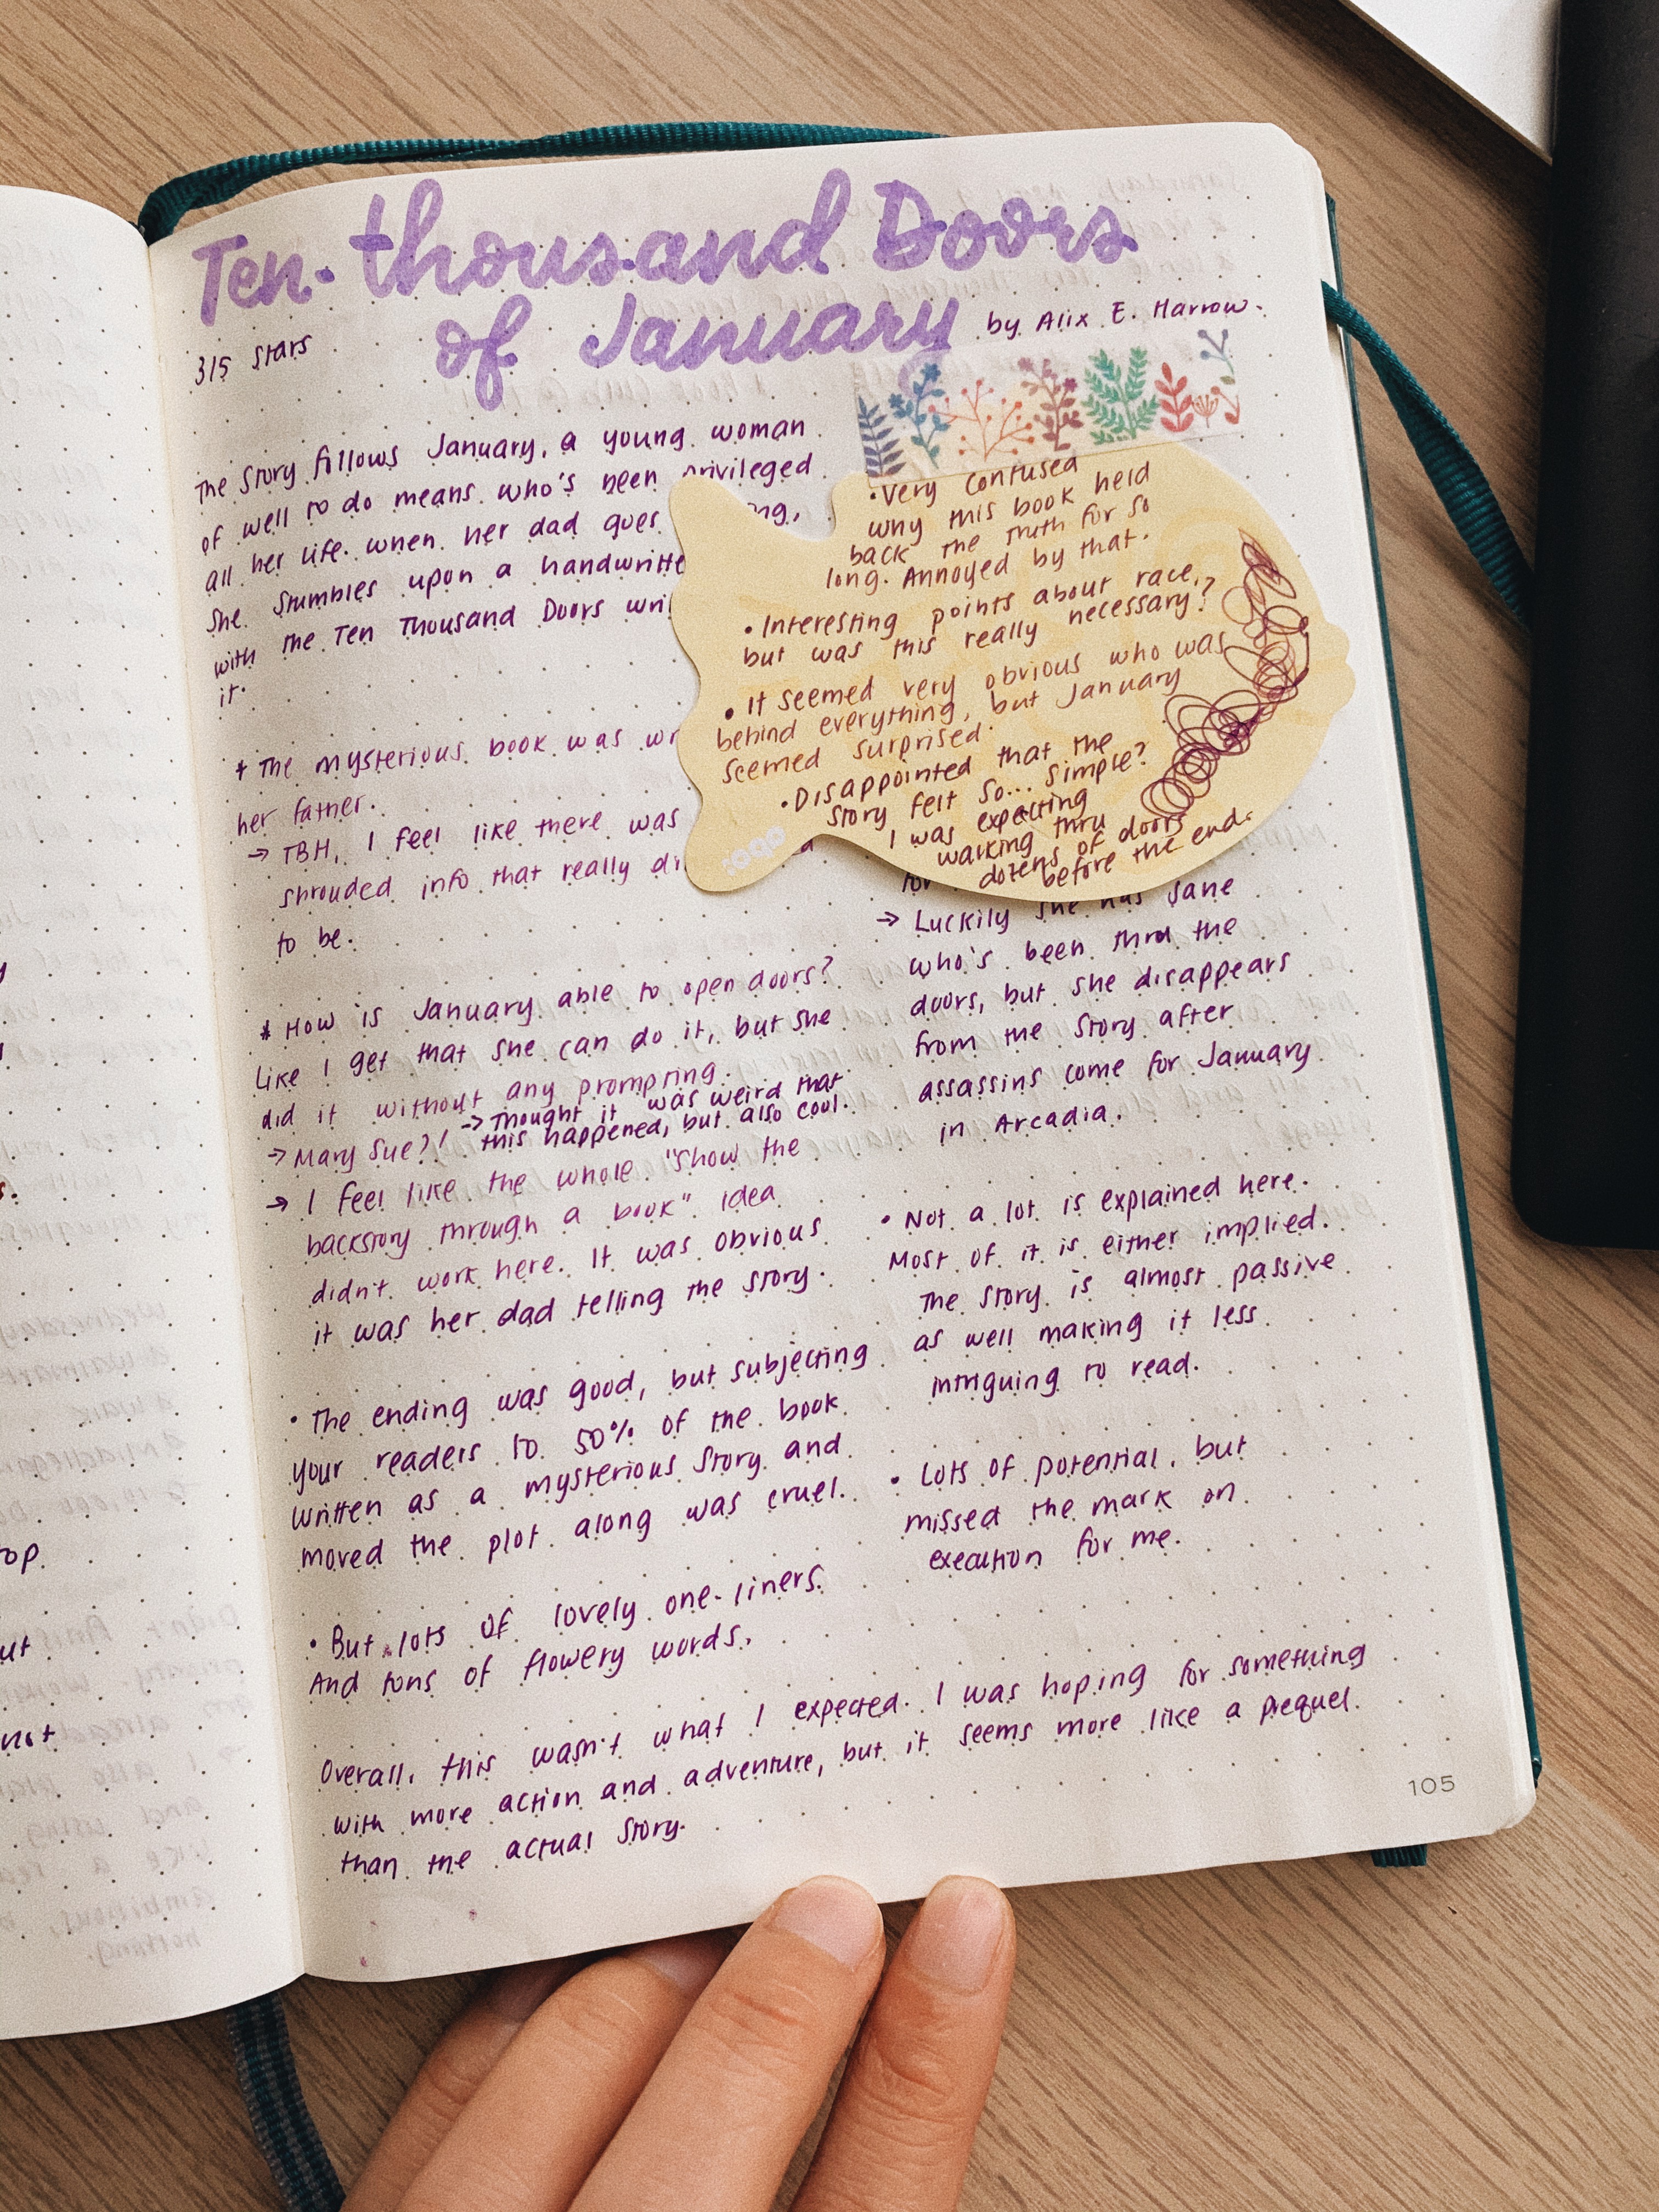 Ten thousand Doors
of January
by Alix E. Harrow.
3/5 stars
The story follows January, a young woman
of well to do means who's been privileged
all her life. When her dad goes
she stumbles upon a handwritte
with the Ten Thousand Doors wri
it.
* The mysterious book was wr
her father.
→ TBH, I feel like there was
shrouded info that really di
to be.
* How is January able to open doors?
Like I get that she can do it, but she
did it without any prompting.
→ Mary Sue?! → Thought it was weird that
this happened, but also cool.
→ I feel like the whole "show the
backstory through a book" idea
didn't work here. It was obvious
it was her dad telling the story.
• The ending was good, but subjecting
your readers to 50% of the book
written as a mysterious story and
moved the plot along was cruel.
• But lots of lovely one-liners.
And tons of flowery words.
• Very confused
why this book held
back the truth for so
long. Annoyed by that.
• Interesting points about race,
but was this really necessary?
• It seemed very obvious who was
behind everything, but January
seemed surprised.
• Disappointed that the
story felt so... simple?
I was expecting
walking thru
dozens of doors
before the end.
→ Luckily she has Jane
who's been thru the
doors, but she disappears
from the story after
assassins come for January
in Arcadia.
• Not a lot is explained here.
Most of it is either implied.
The story is almost passive
as well making it less
intriguing to read.
• Lots of potential, but
missed the mark on
execution for me.
Overall, this wasn't what I expected. I was hoping for something
with more action and adventure, but it seems more like a prequel
than the actual story.
105